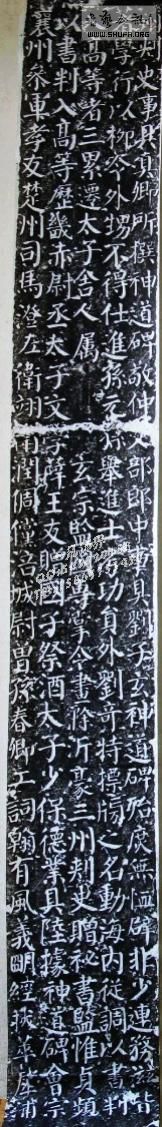 WWW.SHUFA.ORG
史事具真卿所撰神道碑敬仲吏部郎中事具劉子玄神道碑殆庶無恤辟非少連務滋皆
著學行以柳令外甥不得仕進孫元孫舉進士考功員外劉奇特標牓之名動海内從調以書判
入高等者三累遷太子舍人屬玄宗監國專掌令畫滁沂豪三州刺史贈秘書監惟貞頻
以書判入高等歷畿赤尉丞太子文學薛王友贈國子祭酒太子少保德業具陸據神道碑會宗
襄州參軍孝友楚州司馬澄左衛翊衛潤倜儻涪城尉曾孫春卿工詞翰有風義明經拔萃犀浦